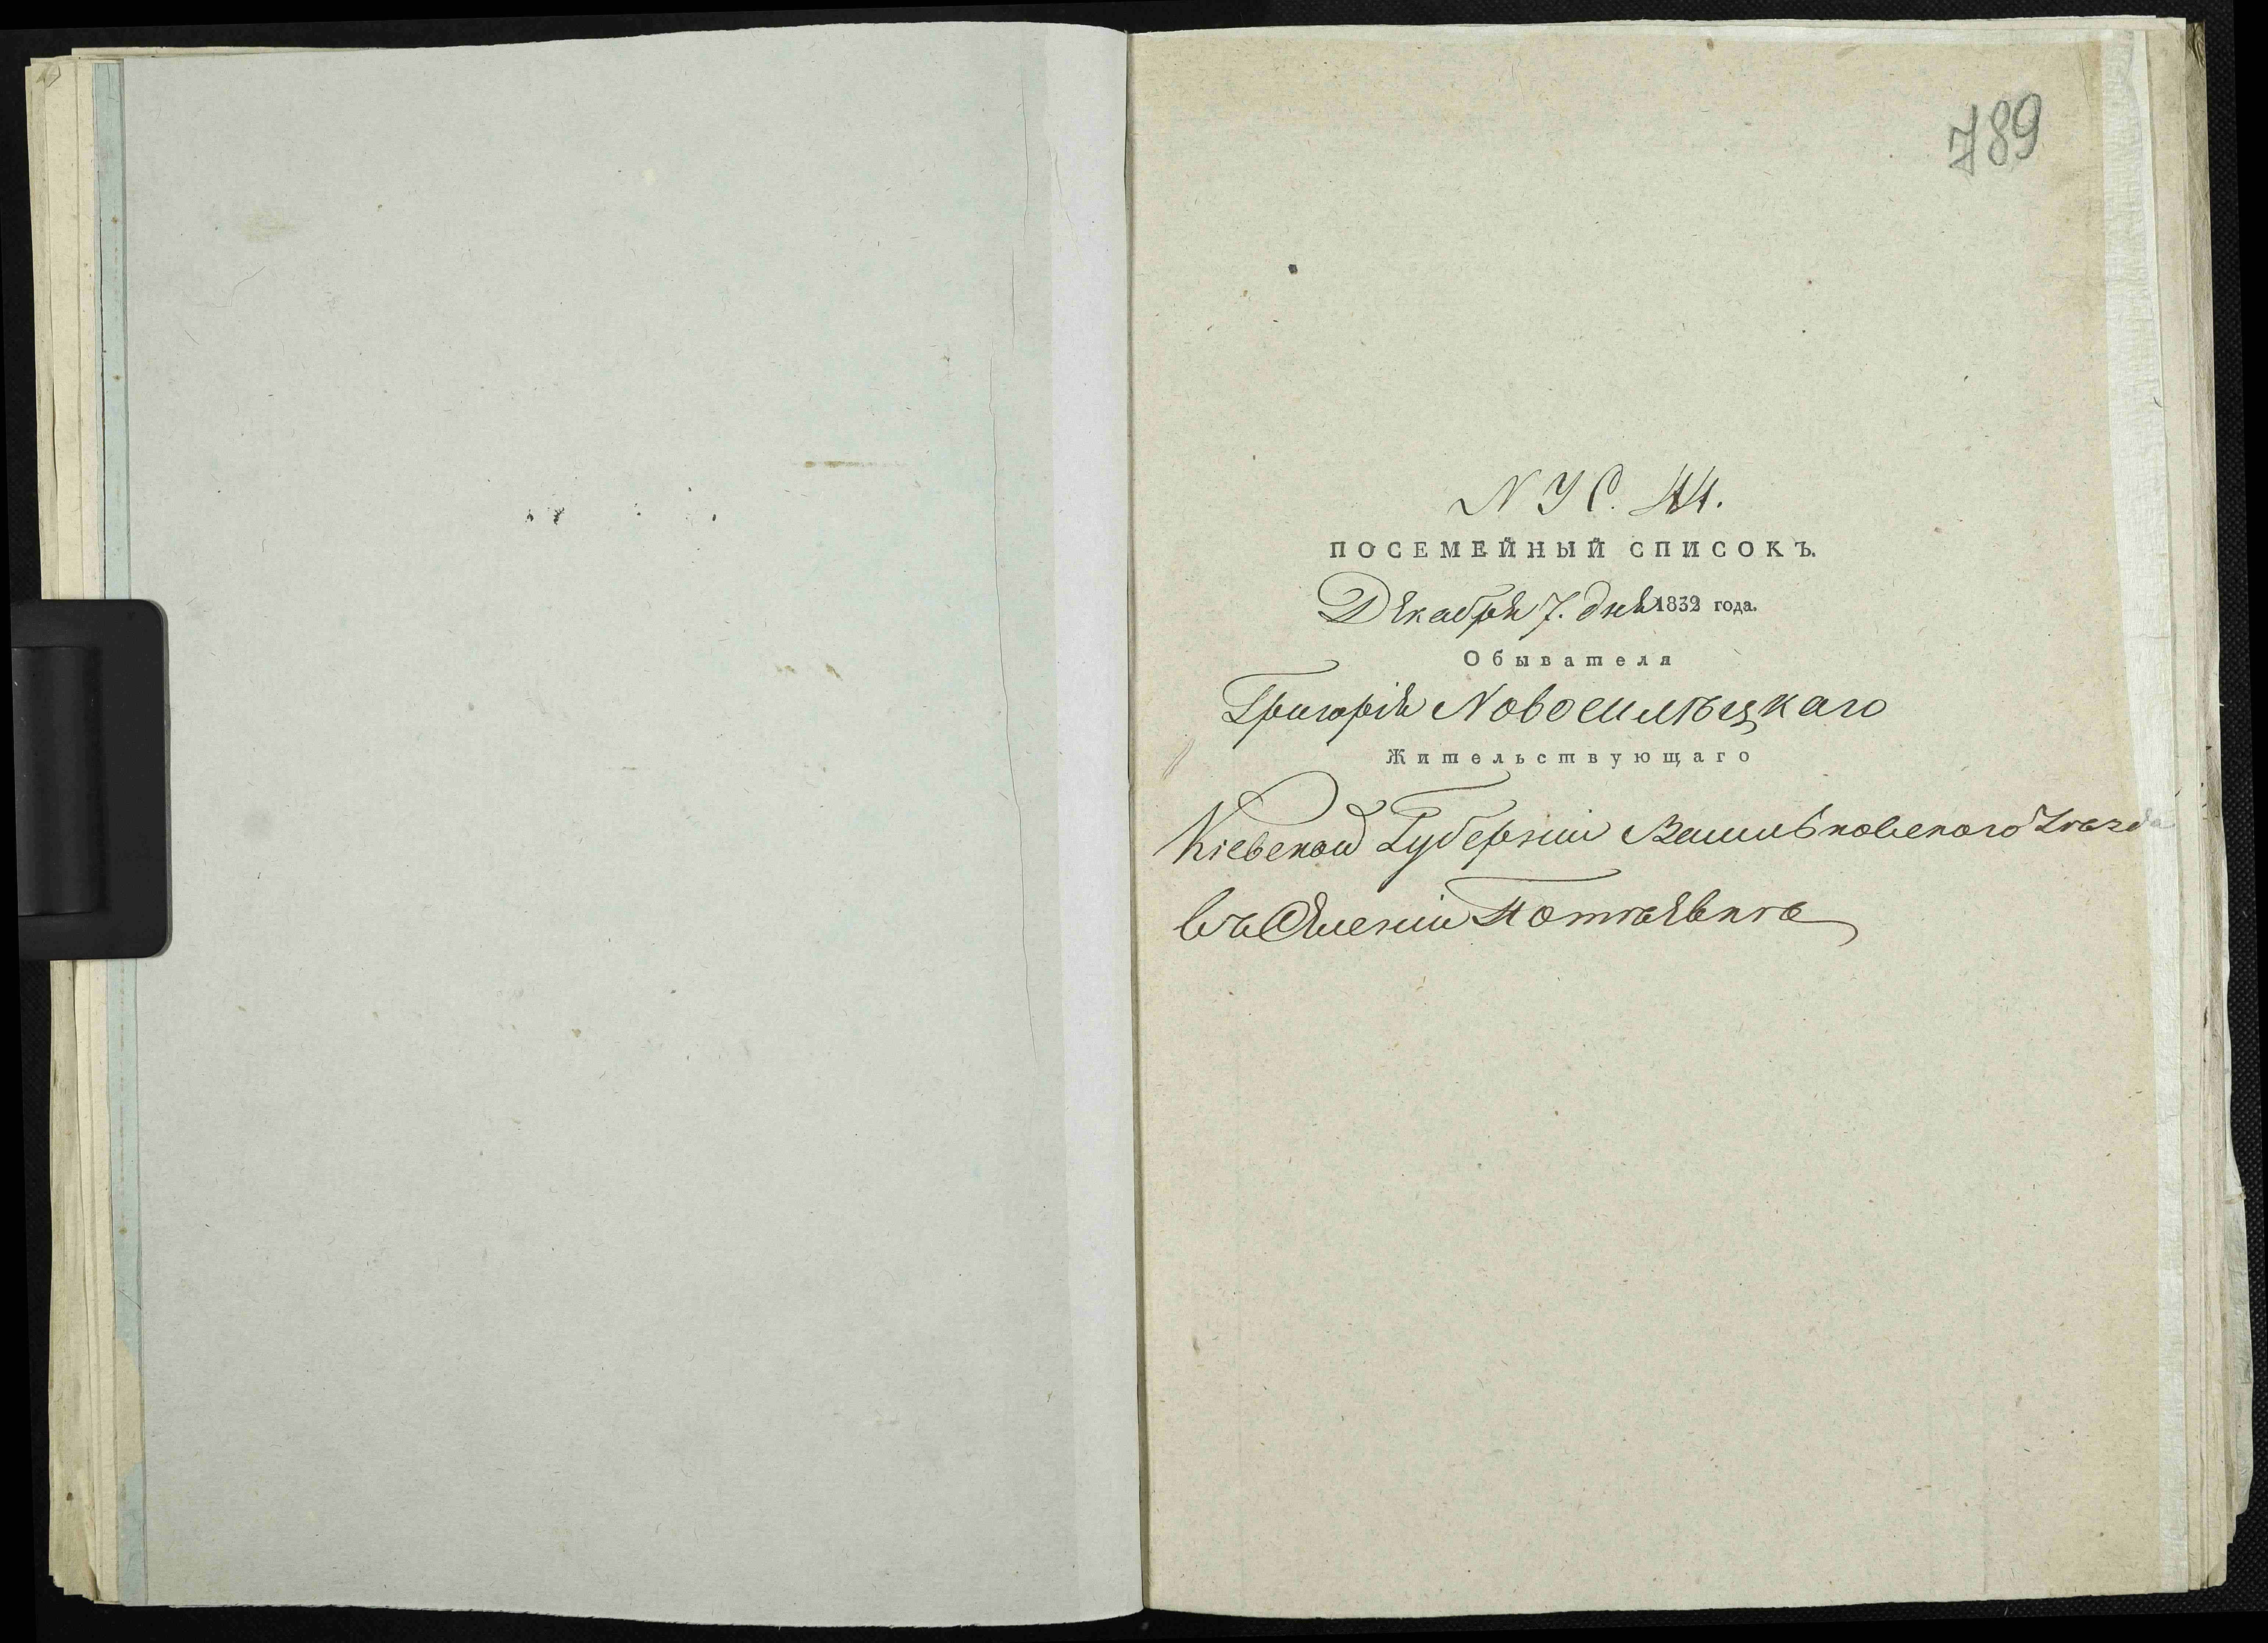 789
N У С. 44.
ПОСЕМЕЙНЫЙ СПИСОКЪ.
Декабря 7. дня 1832 года.
Обывателя
Григорія Новосилѣцкаго
Жительствующаго
Кіевской Губерніи Васильковского уѣзда
въ Селеніи Потіевкѣ